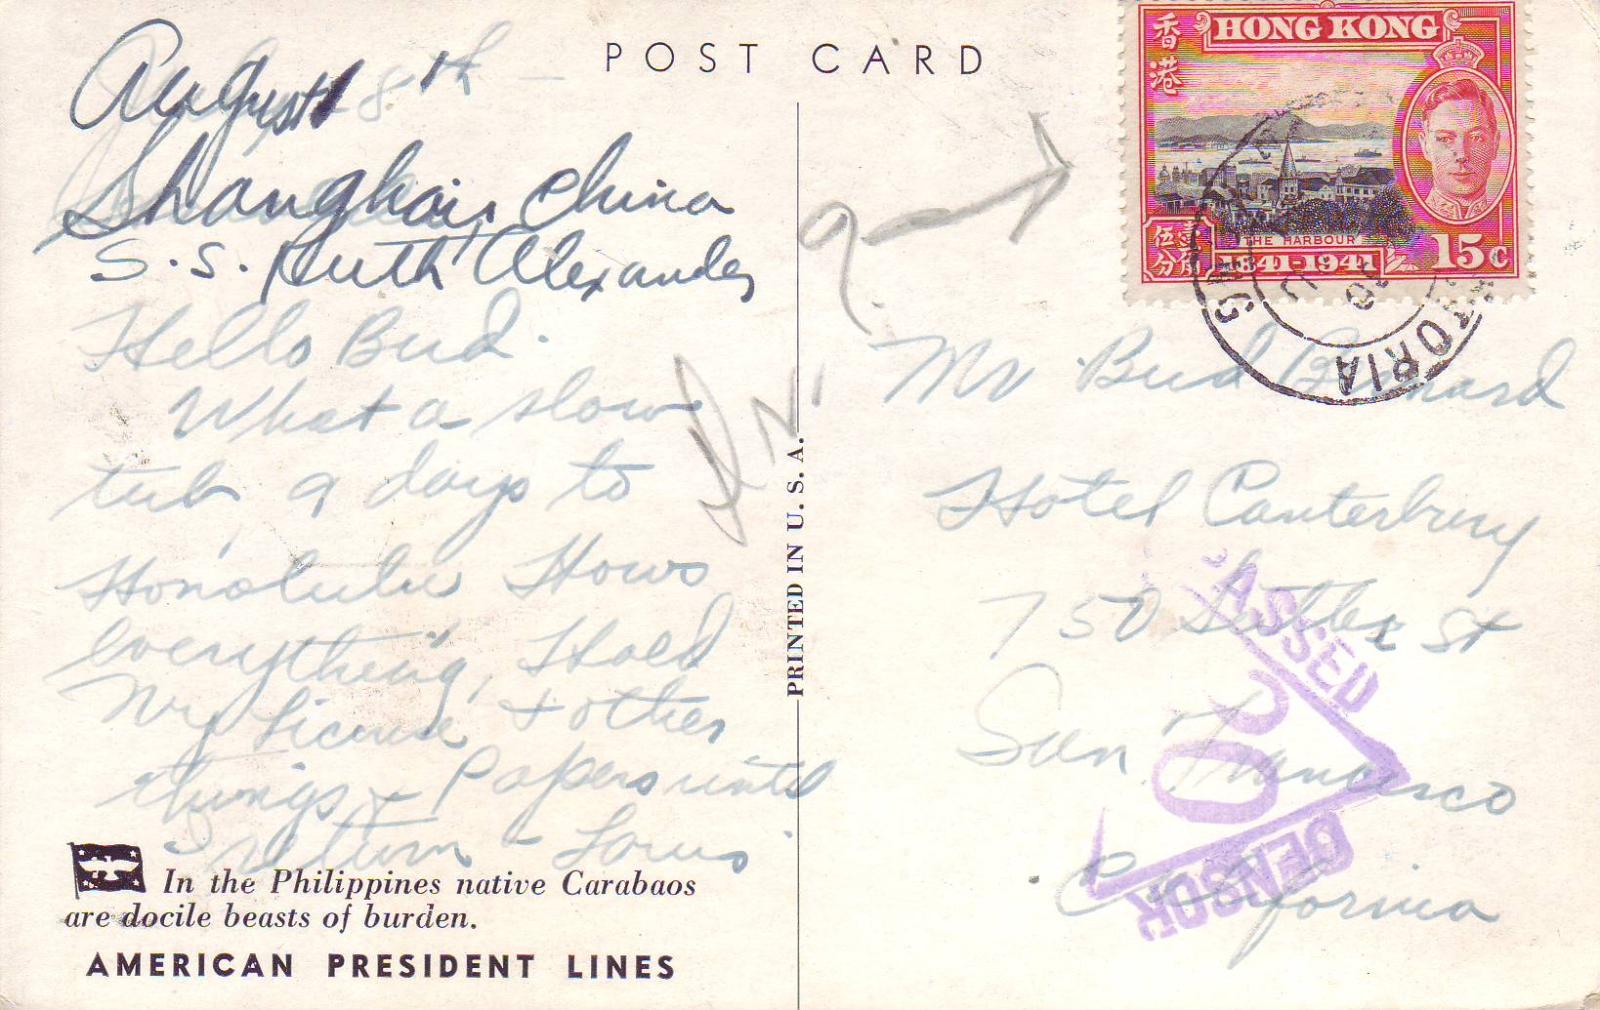 POST CARD
August 8th
Shanghai, China
S.S. Ruth Alexander
Hello Bud.
What a slow
tub 9 days to
Honolulu Hows
everything, Hold
My License + other
things & Papers until
I return - Louis
In the Philippines native Carabaos
are docile beasts of burden.
AMERICAN PRESIDENT LINES
PRINTED IN U. S. A.
香港
HONG KONG
THE HARBOUR
1841-1941
壹角
伍分
15c
VICTORIA
10
Mr Bud
Hotel Canterbury
750 Sutter St
San Francisco
California
PASSED
CENSOR